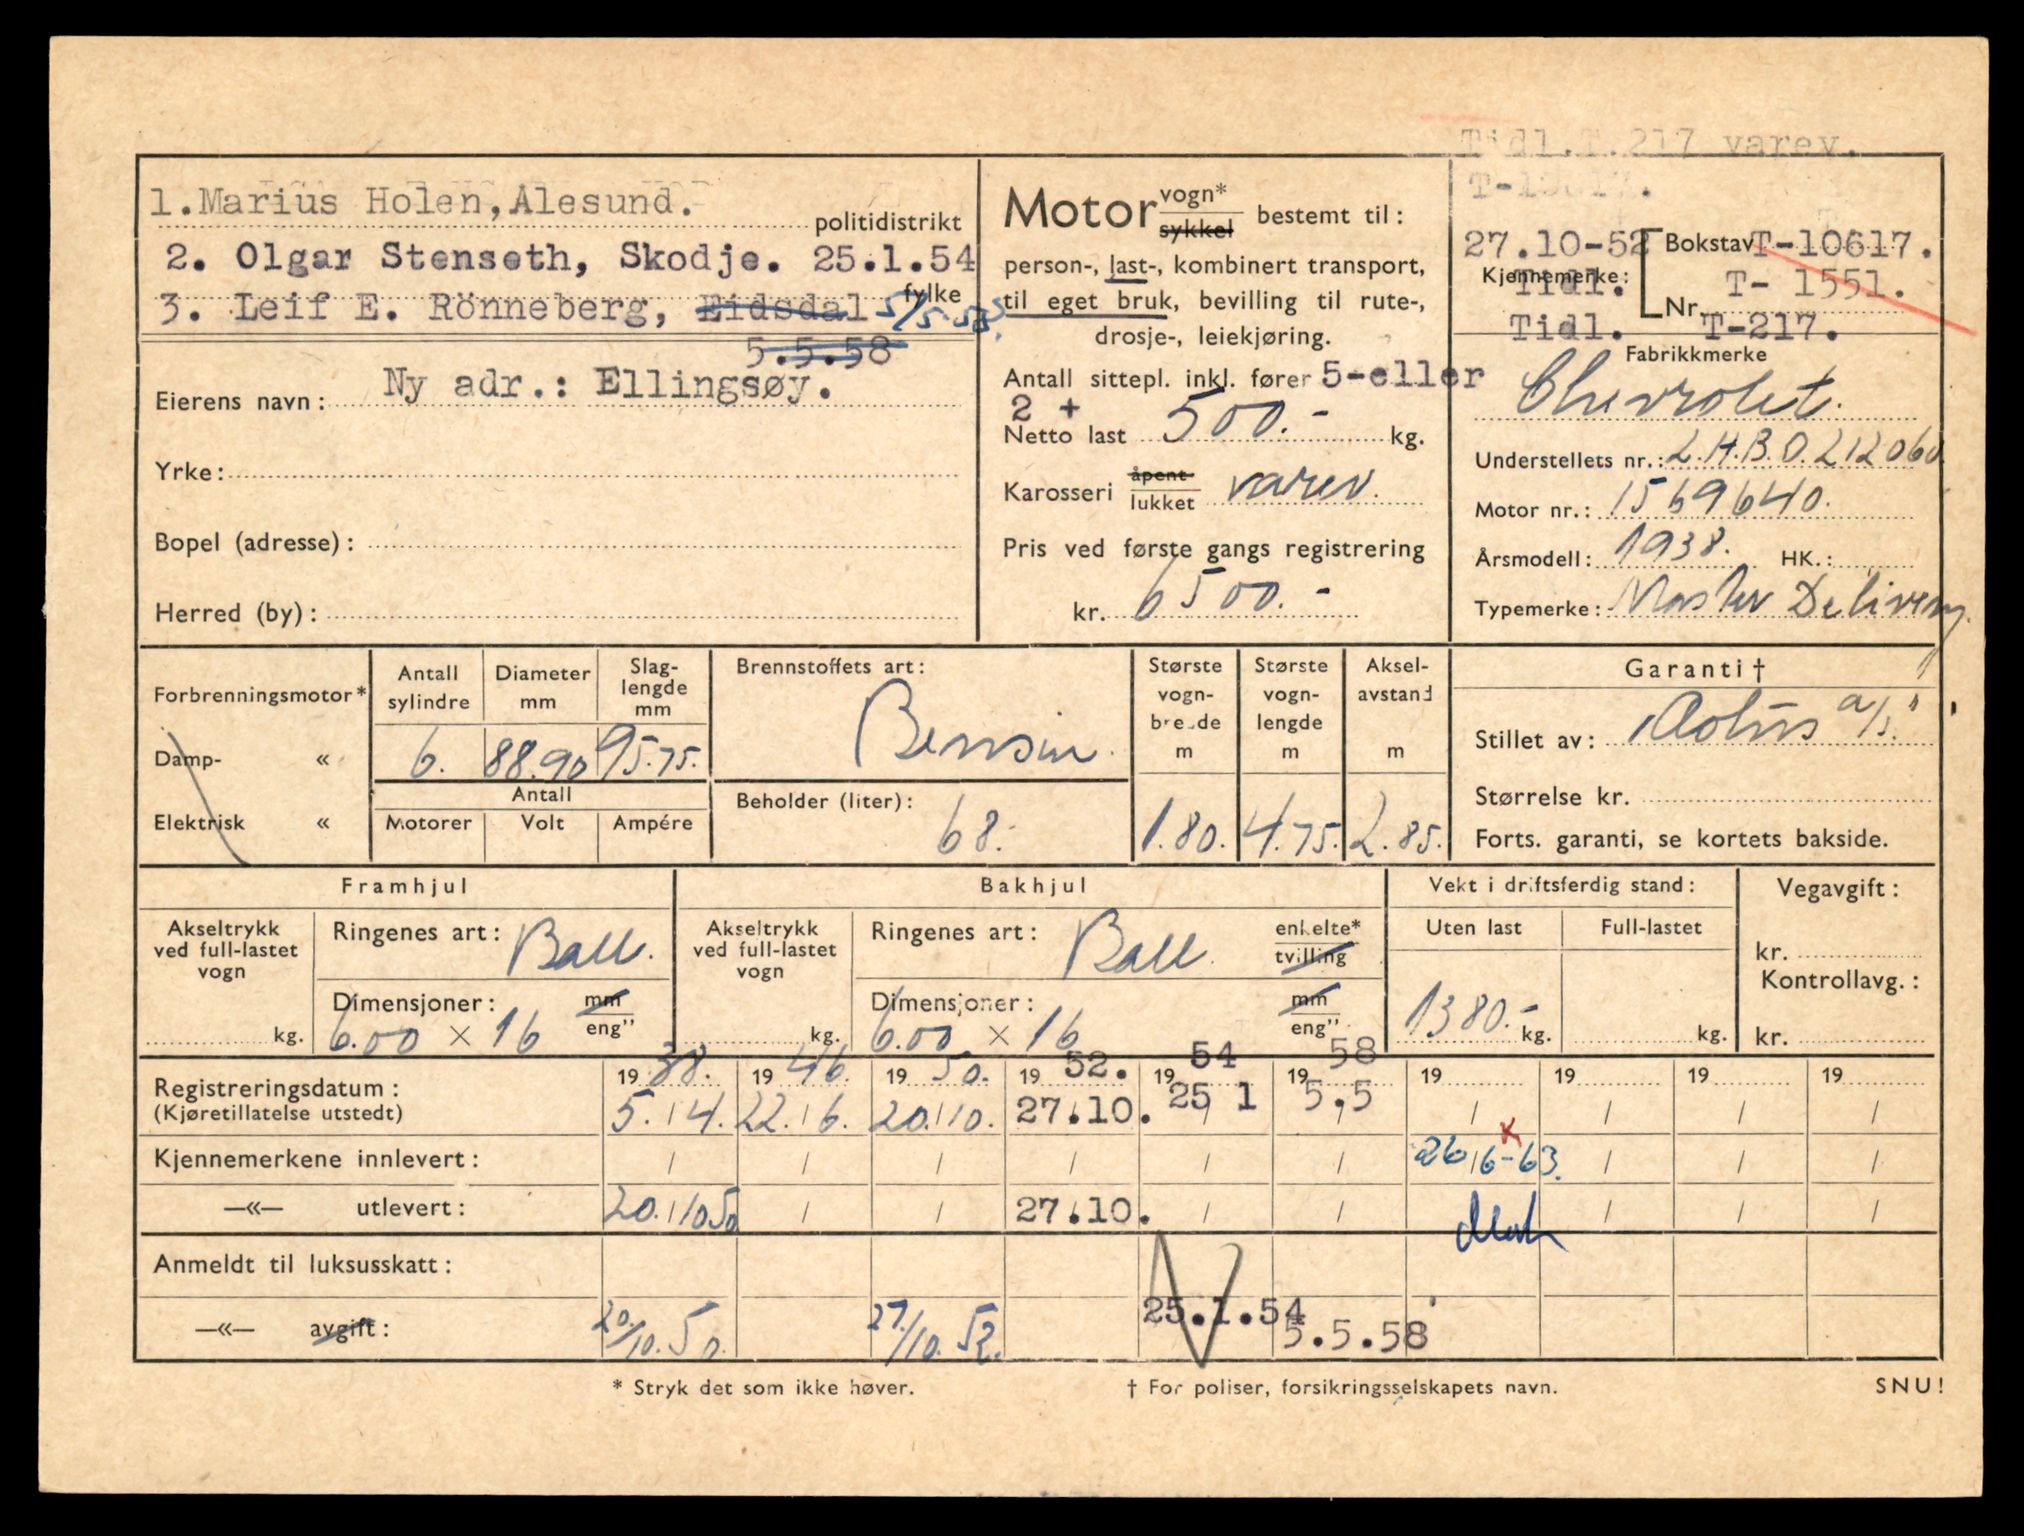 Tidl.T.217 varev.
1.Marius Holen,Alesund.
politidistrikt
2. Olgar Stenseth, Skodje. 25.1.54
fylke
3. Leif E. Rönneberg, Eidsdal 5/5.58
5.5.58
Ny adr.: Ellingsøy.
Eierens navn:
Yrke:
Bopel (adresse):
Herred (by):
Motor vogn* sykkel bestemt til:
person-, last-, kombinert transport,
til eget bruk, bevilling til rute-,
drosje-, leiekjøring.
Antall sittepl. inkl. fører 5-eller
2 +
Netto last 500.- kg.
Karosseri åpent lukket varev.
Pris ved første gangs registrering
kr. 6500.-
27.10-52 Bokstav T-10617.
Kjennemerke: Tidl. T- 1551.
Nr.
Tidl. T-217.
Fabrikkmerke
Chevrolet.
Understellets nr.: L.H.B.O.212060
Motor nr.: 1569640.
Årsmodell: 1938. HK.:
Typemerke: Master Delivery.
Forbrenningsmotor*
Damp- «
Elektrisk «
Antall sylindre
6.
Diameter mm
88.90
Slaglengde mm
95.75.
Antall
Motorer Volt Ampére
Brennstoffets art:
Bensin.
Beholder (liter):
68.
Største vognbredde m
1.80.
Største vognlengde m
4.75.
Akselavstand m
2.85.
Garanti †
Stillet av: a/s.
Størrelse kr.
Forts. garanti, se kortets bakside.
Framhjul
Akseltrykk ved full-lastet vogn
kg.
Ringenes art: Ball.
Dimensjoner: mm eng"
6.00 × 16
Bakhjul
Akseltrykk ved full-lastet vogn
kg.
Ringenes art: Ball. enkelte* tvilling
Dimensjoner: mm eng"
6.00 × 16
Vekt i driftsferdig stand:
Uten last Full-lastet
1380.- kg. kg.
Vegavgift:
kr.
Kontrollavg.:
kr.
Registreringsdatum: 19 38. 19 46. 19 50. 19 52. 19 54 19 58 19 19 19 19
(Kjøretillatelse utstedt) 5./4. 22./6. 20./10. 27.10. 25 1 5.5 / / / /
Kjennemerkene innlevert: / / / / / / 26/6-63. / / /
—«— utlevert: 20./10 50 / / 27.10. / / / / /
Anmeldt til luksusskatt:
—«— avgift: 20./10. 50. 27./10. 52. 25.1.54 5.5.58
* Stryk det som ikke høver.
† For poliser, forsikringsselskapets navn.
SNU!